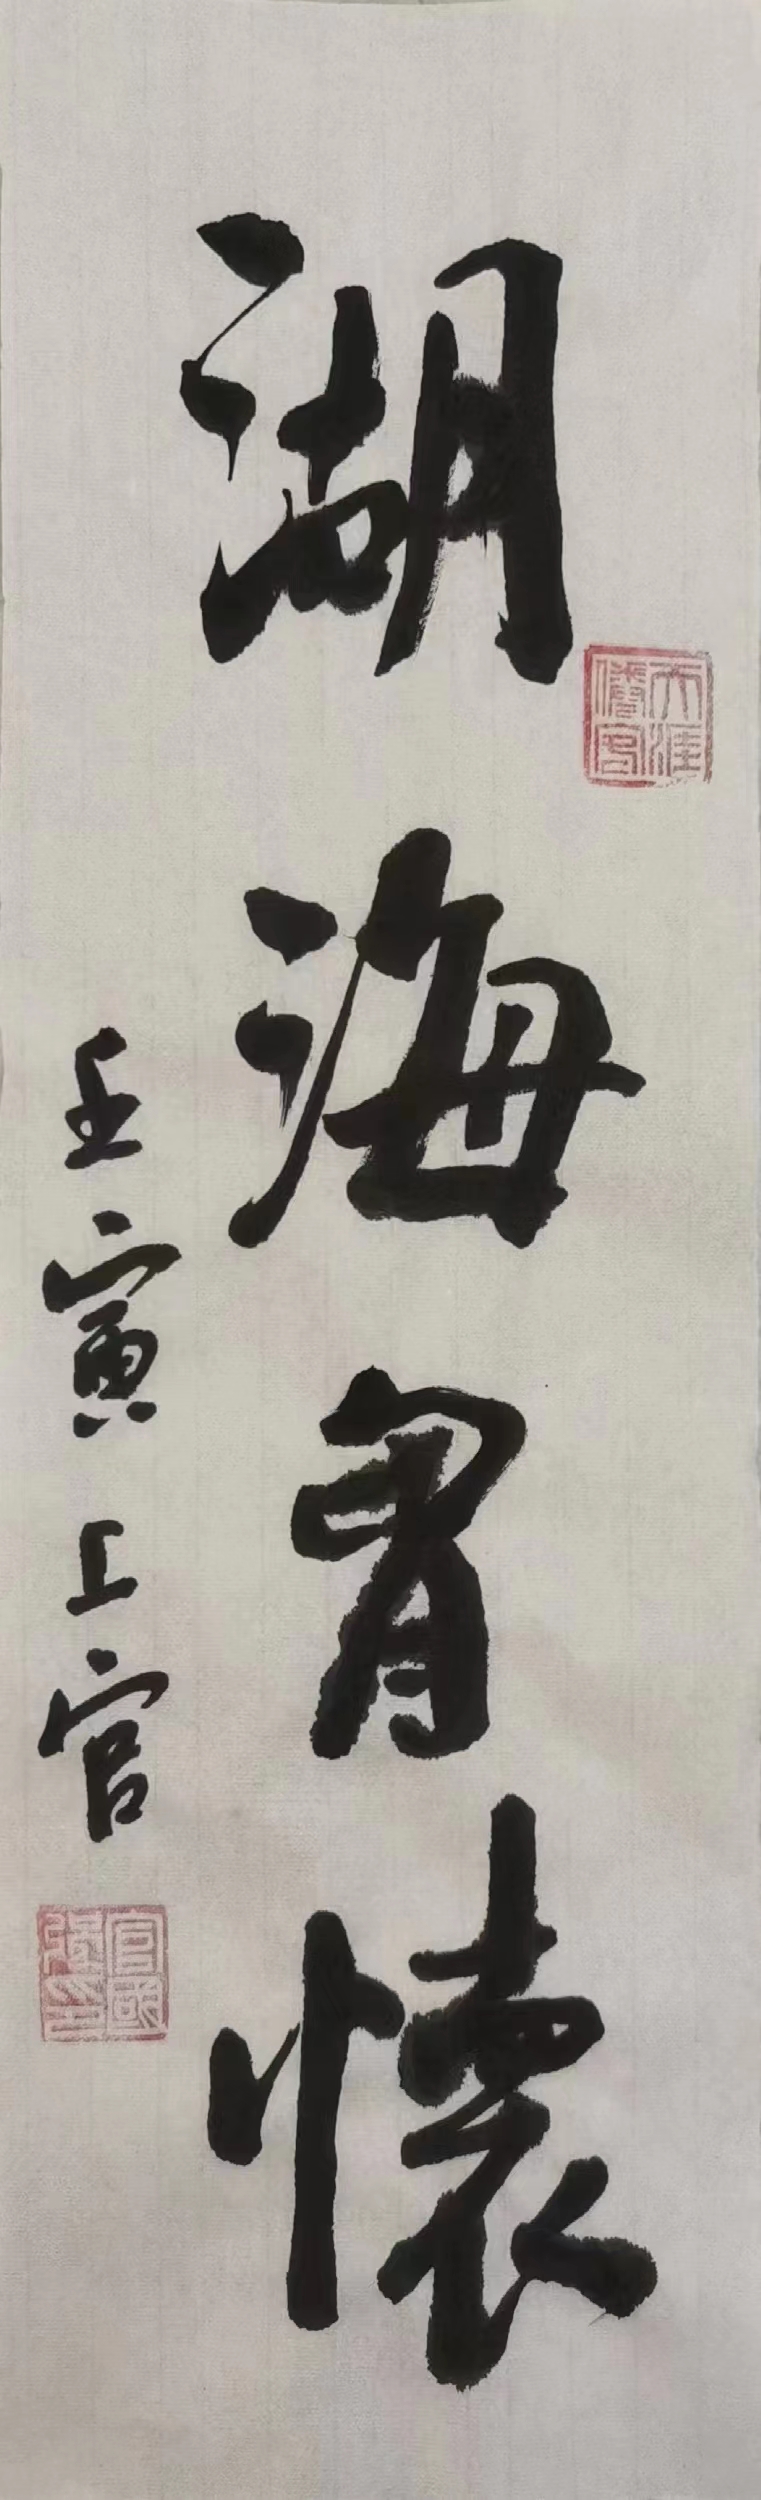 湖海胷懷
壬寅上官